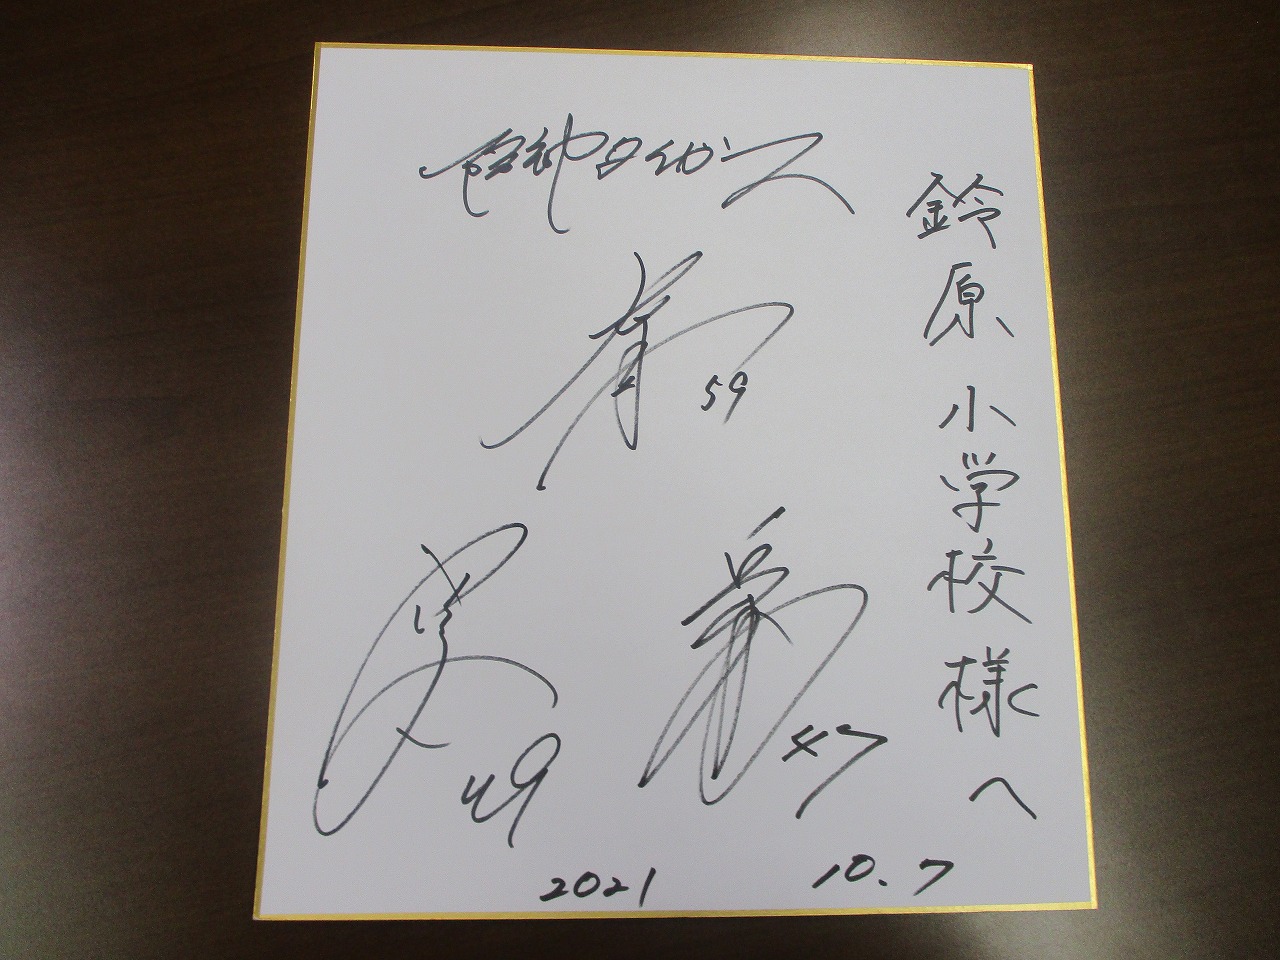 鈴原小学校様へ
阪神タイガース
59
49
47
2021 10.7